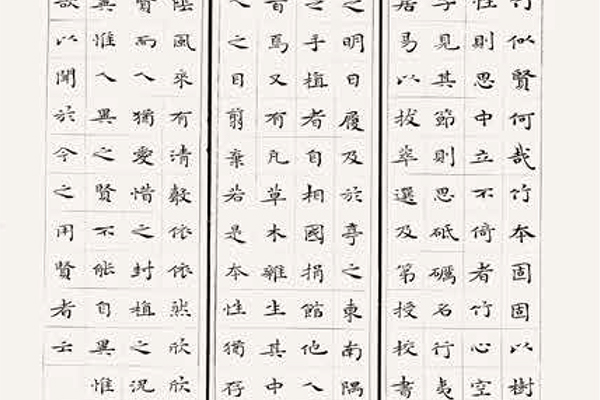 竹似賢何哉竹本固固以樹
性則思中立不倚者竹心空
子見其節則思砥礪名行夷
居易以拔萃選及第授校書
之明日履及於亭之東南隅
之手植者自相國捐館他人
百焉又有凡草木雜生其中
人之目翦棄若是本性猶存
陰風來有清聲依依然欣欣
賢而人猶愛惜之封植之況
異惟人異之賢不能自異惟
欲以聞於今之用賢者云